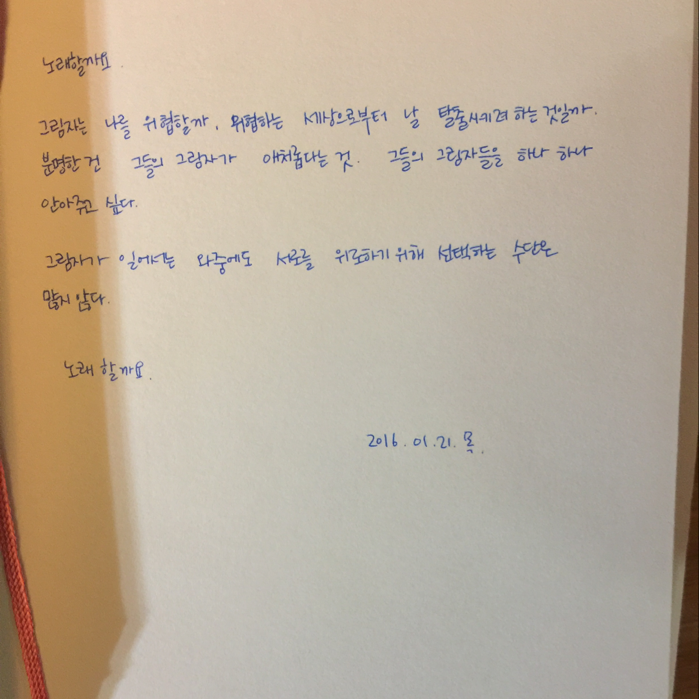 노래할까요.
그림자는 나를 위협할까, 위협하는 세상으로부터 날 탈출시키려 하는 것일까.
분명한 건 그들의 그림자가 애처롭다는 것. 그들의 그림자들을 하나 하나
안아주고 싶다.
그림자가 일어서는 와중에도 서로를 위로하기 위해 선택하는 수단은
많지 않다.
노래 할까요.
2016.01.21.목.